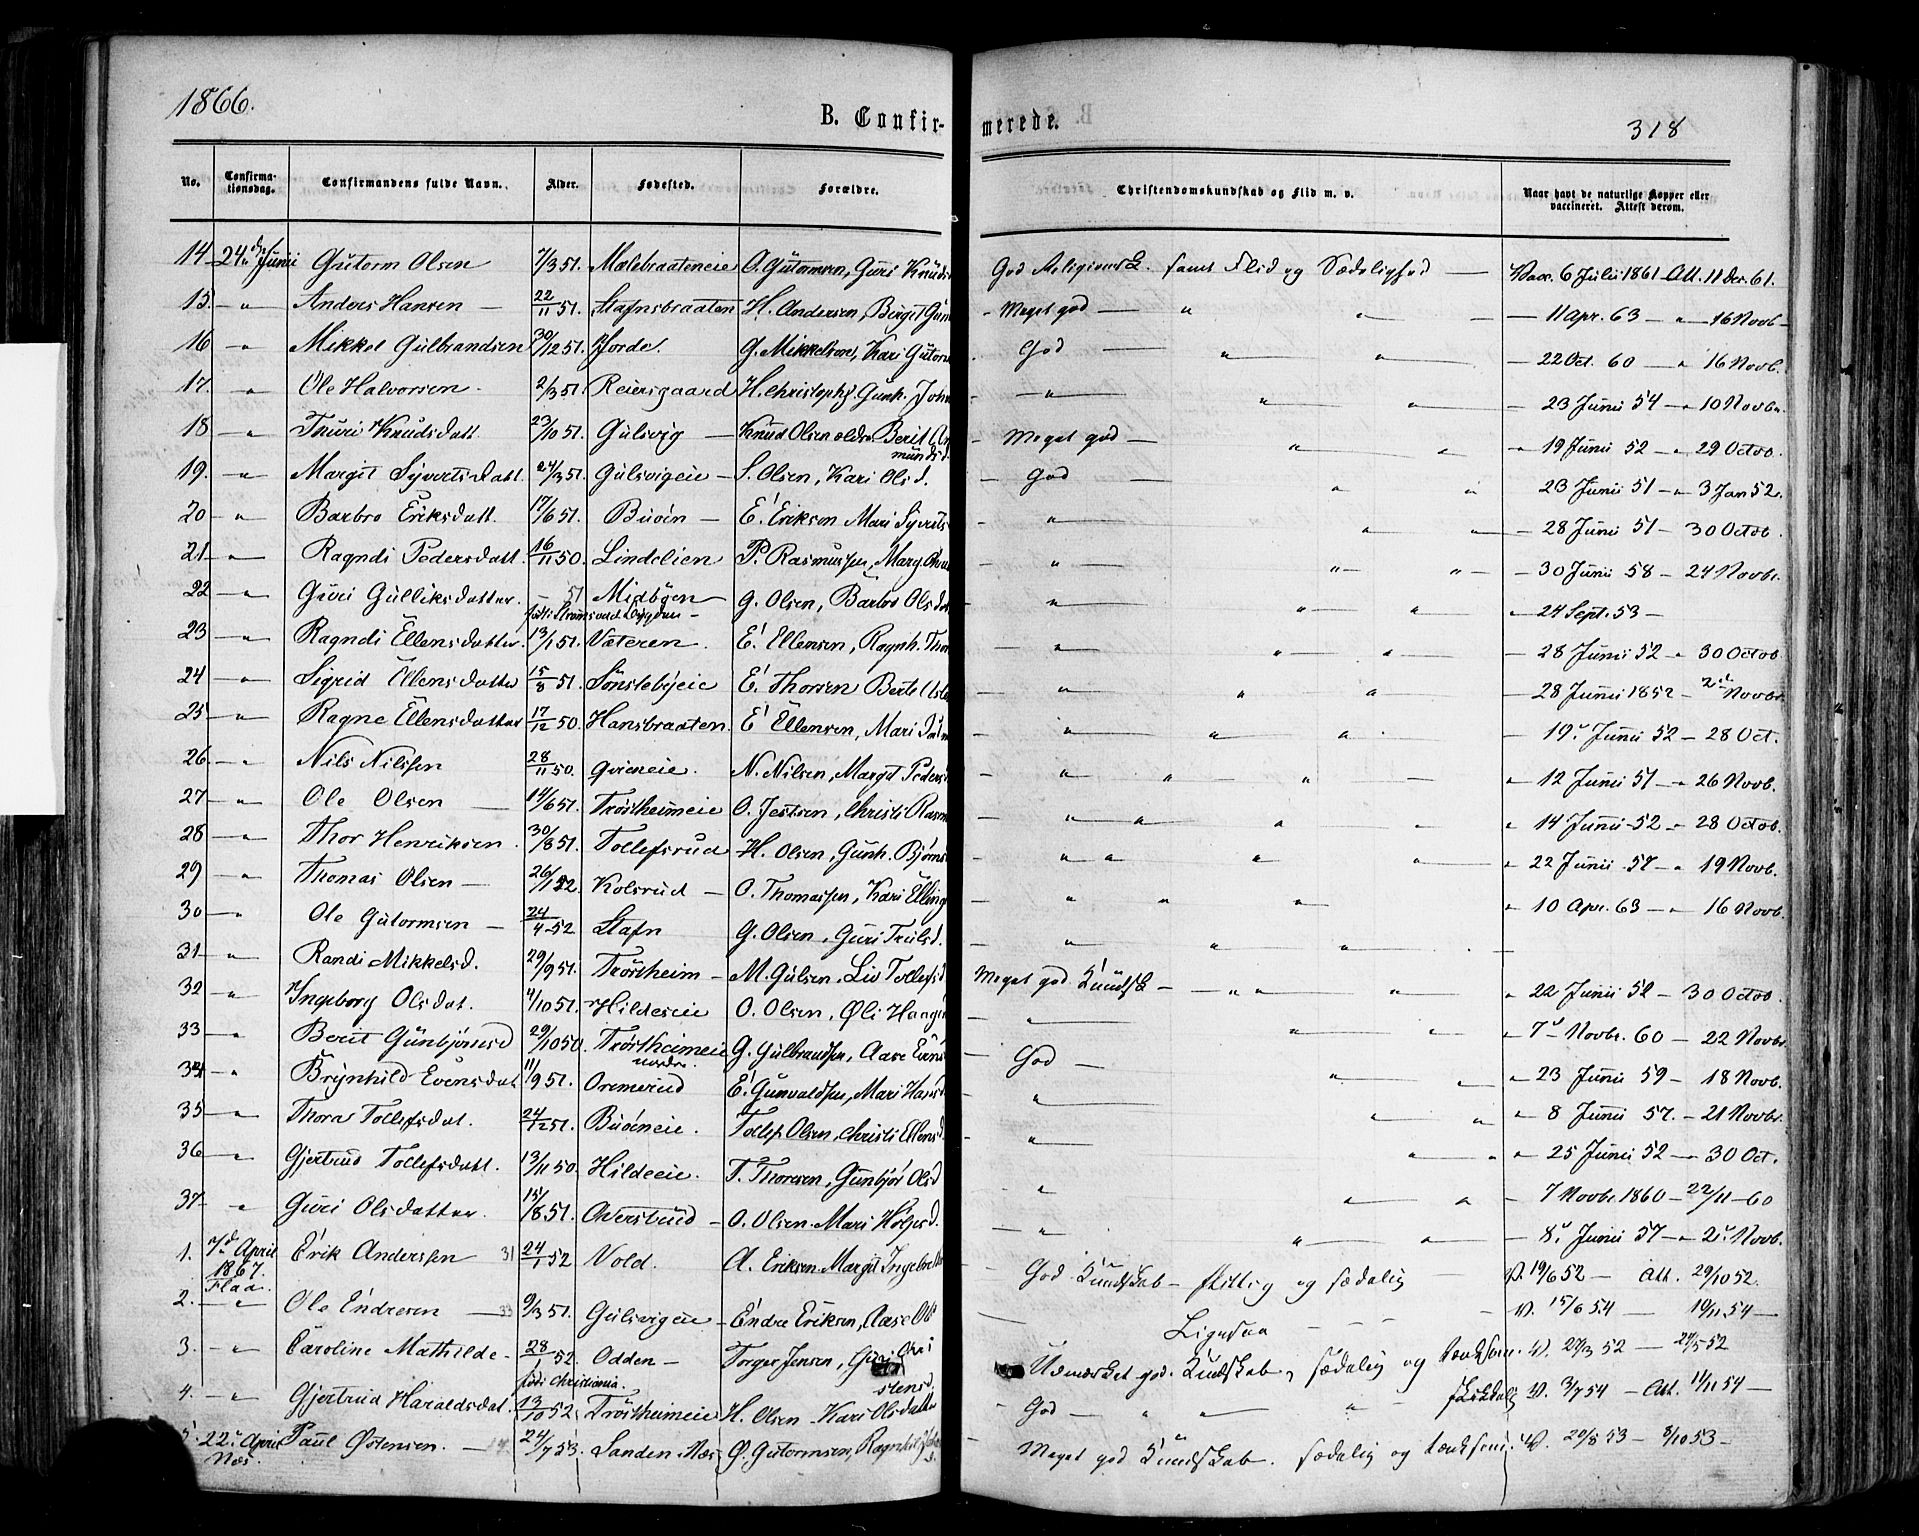 1866.
B. Confir-
merede.
318
No. Confirmationsdag. Confirmandens fulde Navn. Alder. Fødested. Forældre. Christendomskundskab og Flid m. v. Naar havt de naturlige Kopper eller vaccineret. Attest derom.
14 24de Junii Gutorm Olsen 7/3 51. Mælebraateneie O. Gutormsen, Guri Knuds God Religionsk. samt Flid og Sædelighed — Vacc. 6 Julii 1861 Att. 11 Dec. 61.
15 — " Anders Hansen — 22/11 51. Stafnsbraaten H. Andersen, Birgit Gun - Meget god — " " — 11 Apr. 63 — " 16 Novb.
16 — " Mikkel Gulbrandsen 30/12 51. Jorde. G. Mikkelsen, Kari Gutorm God — " " — 22 Oct. 60 — " 16 Novb.
17. — " Ole Halvorsen. 2/3 51. Reiersgaard H. Christophs. Gunh. John — " — " " — 23 Junii 54 — " 10 Novbr
18 — " Thuri Knudsdatt. 23/10 51. Gulsvig — Knud Olsen ældr. Berit Amundsd. - Meget god — " " 19 Junii 52 — " 29 Octob.
19. — " Margit Syvertsdatt. 24/3 51. Gulsvigeie — S. Olsen, Kari Olsd. — God — " " 23 Junii 51 — " 3 Jan 52.
20 — " Barbro Eriksdatt. 17/6 51. Buøin — E. Erikson Mari Syverts — " — " " — 28 Junii 51 — 30 Octob.
21 — " Ragndi Pedersdatt. 16/11 50. Lindelien P. Rasmussen, Marg. — " — " " — 30 Junii 58 — 24 Novbr.
22 — " Guri Gulliksdatter. — 51 Midbøen — G. Olsen, Barbro Olsdat — " — " " 24 Sept. 53 —
23 — " Ragndi Ellensdatter. 13/1 51. Væteren. E. Ellensen, Ragnh. Thor — " — " " — 28 Junii 52 — " 30 Octob
24 — " Sigrid Ellensdatter 15/8 51. Sønstebyeie E. Thorsen Berte — " — " " — 28 Junii 1852 — 2den Novbr.
25 — " Ragne Ellensdatter 17/12 50. Hansbraaten. E. Ellensen, Mari — " — " " — 19. Junii 52 — 28 Oct.
26 — " Nils Nilssen 28/11 50. Gvieneie. N. Nilsen, Margit Peders — " — " " 12 Junii 51 — " 26 Novb.
27 — " Ole Olsen — 14/6 51. Trøstheimeie O. Jestsen, Christi Rasm — " " " 14 Junii 52 — " 28 Octob.
28 — " Thor Henriksen. 30/8 51. Tollefsrud H. Olsen, Gunh. Bjørns — " " " " 22 Junii 57 — " 19 Novb.
29 — " Thomas Olsen — 26/1 52 Kolsrud — O. Thomassen, Kari Elling — " " " 10 Apr. 63 — " 16 Novb.
30 — " Ole Gutormsen — 24/4 52 Stafn G. Olsen, Guri Trulsd. — " " " —
31 — " Randi Mikkelsd. 29/9 51. Trøstheim — M. Gulsen, Liv Tollefsd Meget god Kundsk — " " " 22 Junii 52 — 30 Octob.
32 — " Ingeborg Olsdat. 4/10 51. Hildeseie O. Olsen, Øli — " — " " 7de Novbr. 60 — 22 Novbr
33 — " Berit Gunbjørnsd 29/10 50. Trøstheimeie nordre. G. Gulbrandsen, Aase Evens — God — " " 23 Junii 59 — 18 Novb.
34 — " Brynhild Evensdat 11/9 51. Oremerud E. Gunvaldsen, Mari Hansd — " — " " 8 Junii 57. — 21 Novbr.
35 — " Thora Tollefsdat. 24/12 51. Buøineie. Tollef Olsen, Christi Ellensd. — " — " " 25 Junii 52 — 30 Oct.
36 — " Gjertrud Tollefsdatt. 13/11 50. Hildeeie. T. Thoresen, Gunbjør Olsd " — " " 7 Novbr. 1860 — 22/11 — 60
37 — " Guri Olsdatter 15/8 51. Aversbud — O. Olsen. Mari Holgesd. " — " " 8de Junii 57 — " 2den Novb.
1. 7de April 1867. Flaa. Erik Anderssen 31 24/1 52 Vold. A. Eriksen. Margit Ingebr God Kundskab — flittig og sædelig — V. 19/6 52 — Att. 29/10 52.
2. — " Ole Endresen — 33 9/3 51. Gulsvigeie — Endre Eriksen, Aase Ols — Ligesaa — V. 15/6 54 — 19/11 54 —
3. — " Caroline Mathilde — 28/1 52. født Christiania. Odden — Torger Jensen, Guri Christensd. Udmærket god. Kundskab, sædelig og tænksom. V. 27/3 52 — 24/5 52
4. — " Gjertrud Haraldsdat. 13/10 52. Trøstheimeie H. Olsen — Kari Olsdatter God — " " " skikkelig V. 3/7 54 — Att. 14/11 54 —
5. 22de April Næs. Paul Østensen. — 14. 24/7 53. Sanden. Næs — Ø. Gutormsen, Ragnhild Meget god Kundskab. sædelig og tænksom. V. 20/8 53 — 8/10 53 —
født i Strømsvad bygden —